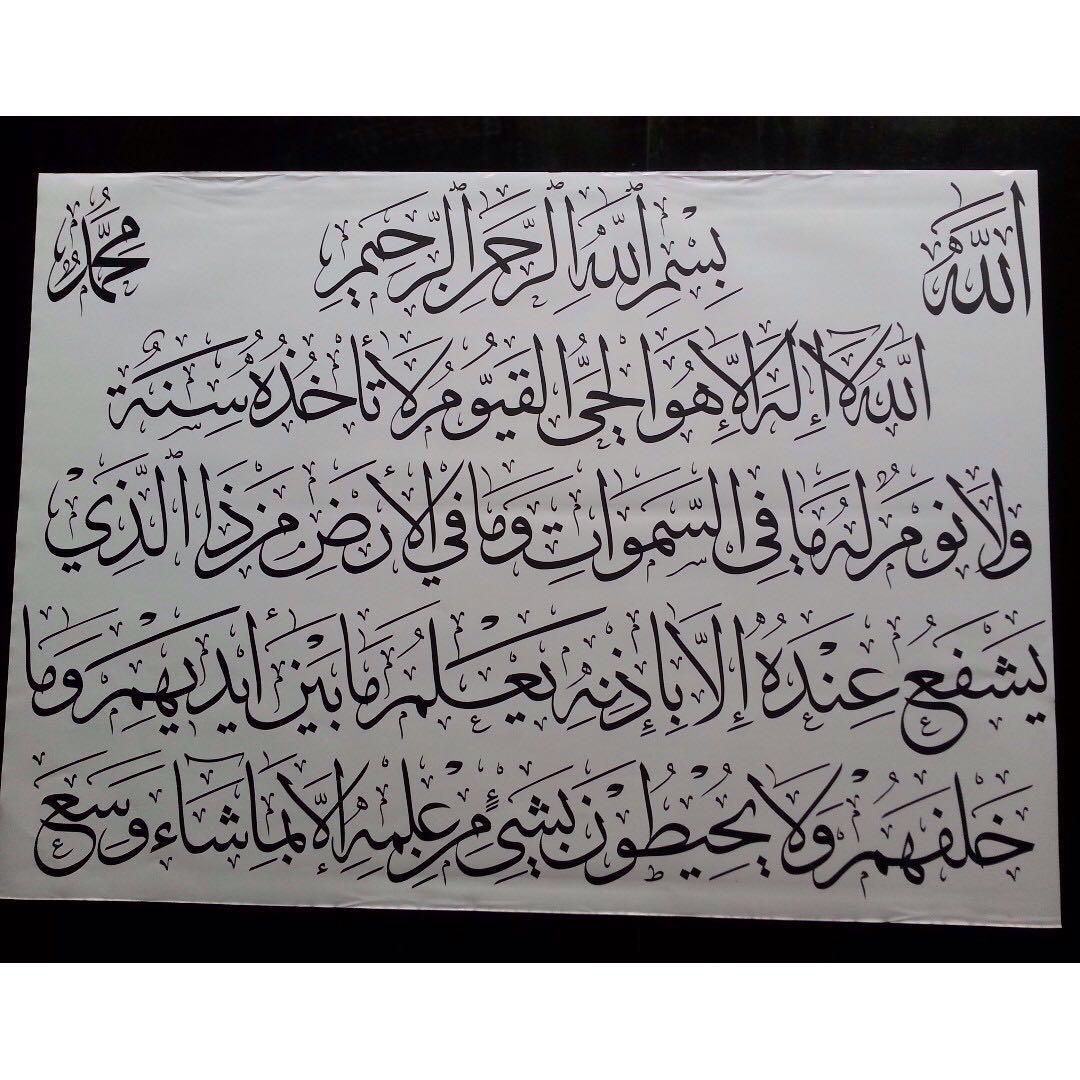 الله بسم الله الرحمن الرحيم محمد
الله لا إله إلا هو الحي القيوم لا تأخذه سنة
ولا نوم له ما في السموات وما في الأرض من ذا الذي
يشفع عنده إلا بإذنه يعلم ما بين أيديهم وما
خلفهم ولا يحيطون بشيء من علمه إلا بما شاء وسع